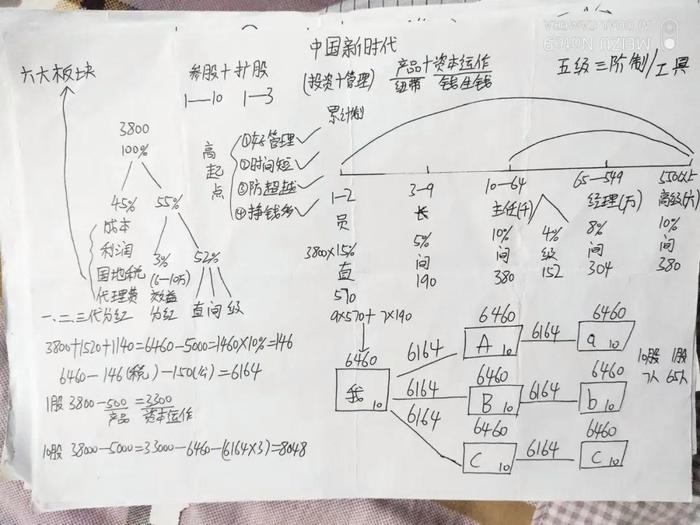 AI DUAL CAMERA
MEIZU NOTE9
中国新时代
六大板块
参股+扩股
1—10 1—3
(投资+管理)
产品+资本运作
纽带 钱生钱
五级三阶制/工具
累计制
3800
100%
45% 55%
成本
利润
国地税
代理费
3%
(6—10万)
效益
分红
52%
直间级
一、二、三代分红
高起点
①好管理
②时间短
③防超越
④挣钱多
1—2
员
3800×15%
直
570
9×570+7×190
3—9
长
5%
间
190
10—64
主任(千)
10%
间
380
4%
级
152
65—549
经理(万)
8%
间
304
550以上
高级(六)
10%
间
380
3800+1520+1140=6460-5000=1460×10%=146
6460-146(税)-150(公)=6164
1股 3800-500=3300
产品 资本运作
10股 38000-5000=33000-6460-(6164×3)=8048
6460
我 10
6164
6164
6164
6460
A 10
6164
6460
a 10
6460
B 10
6164
6460
b 10
6460
C 10
6164
6460
C 10
10股 1股
7人 65人